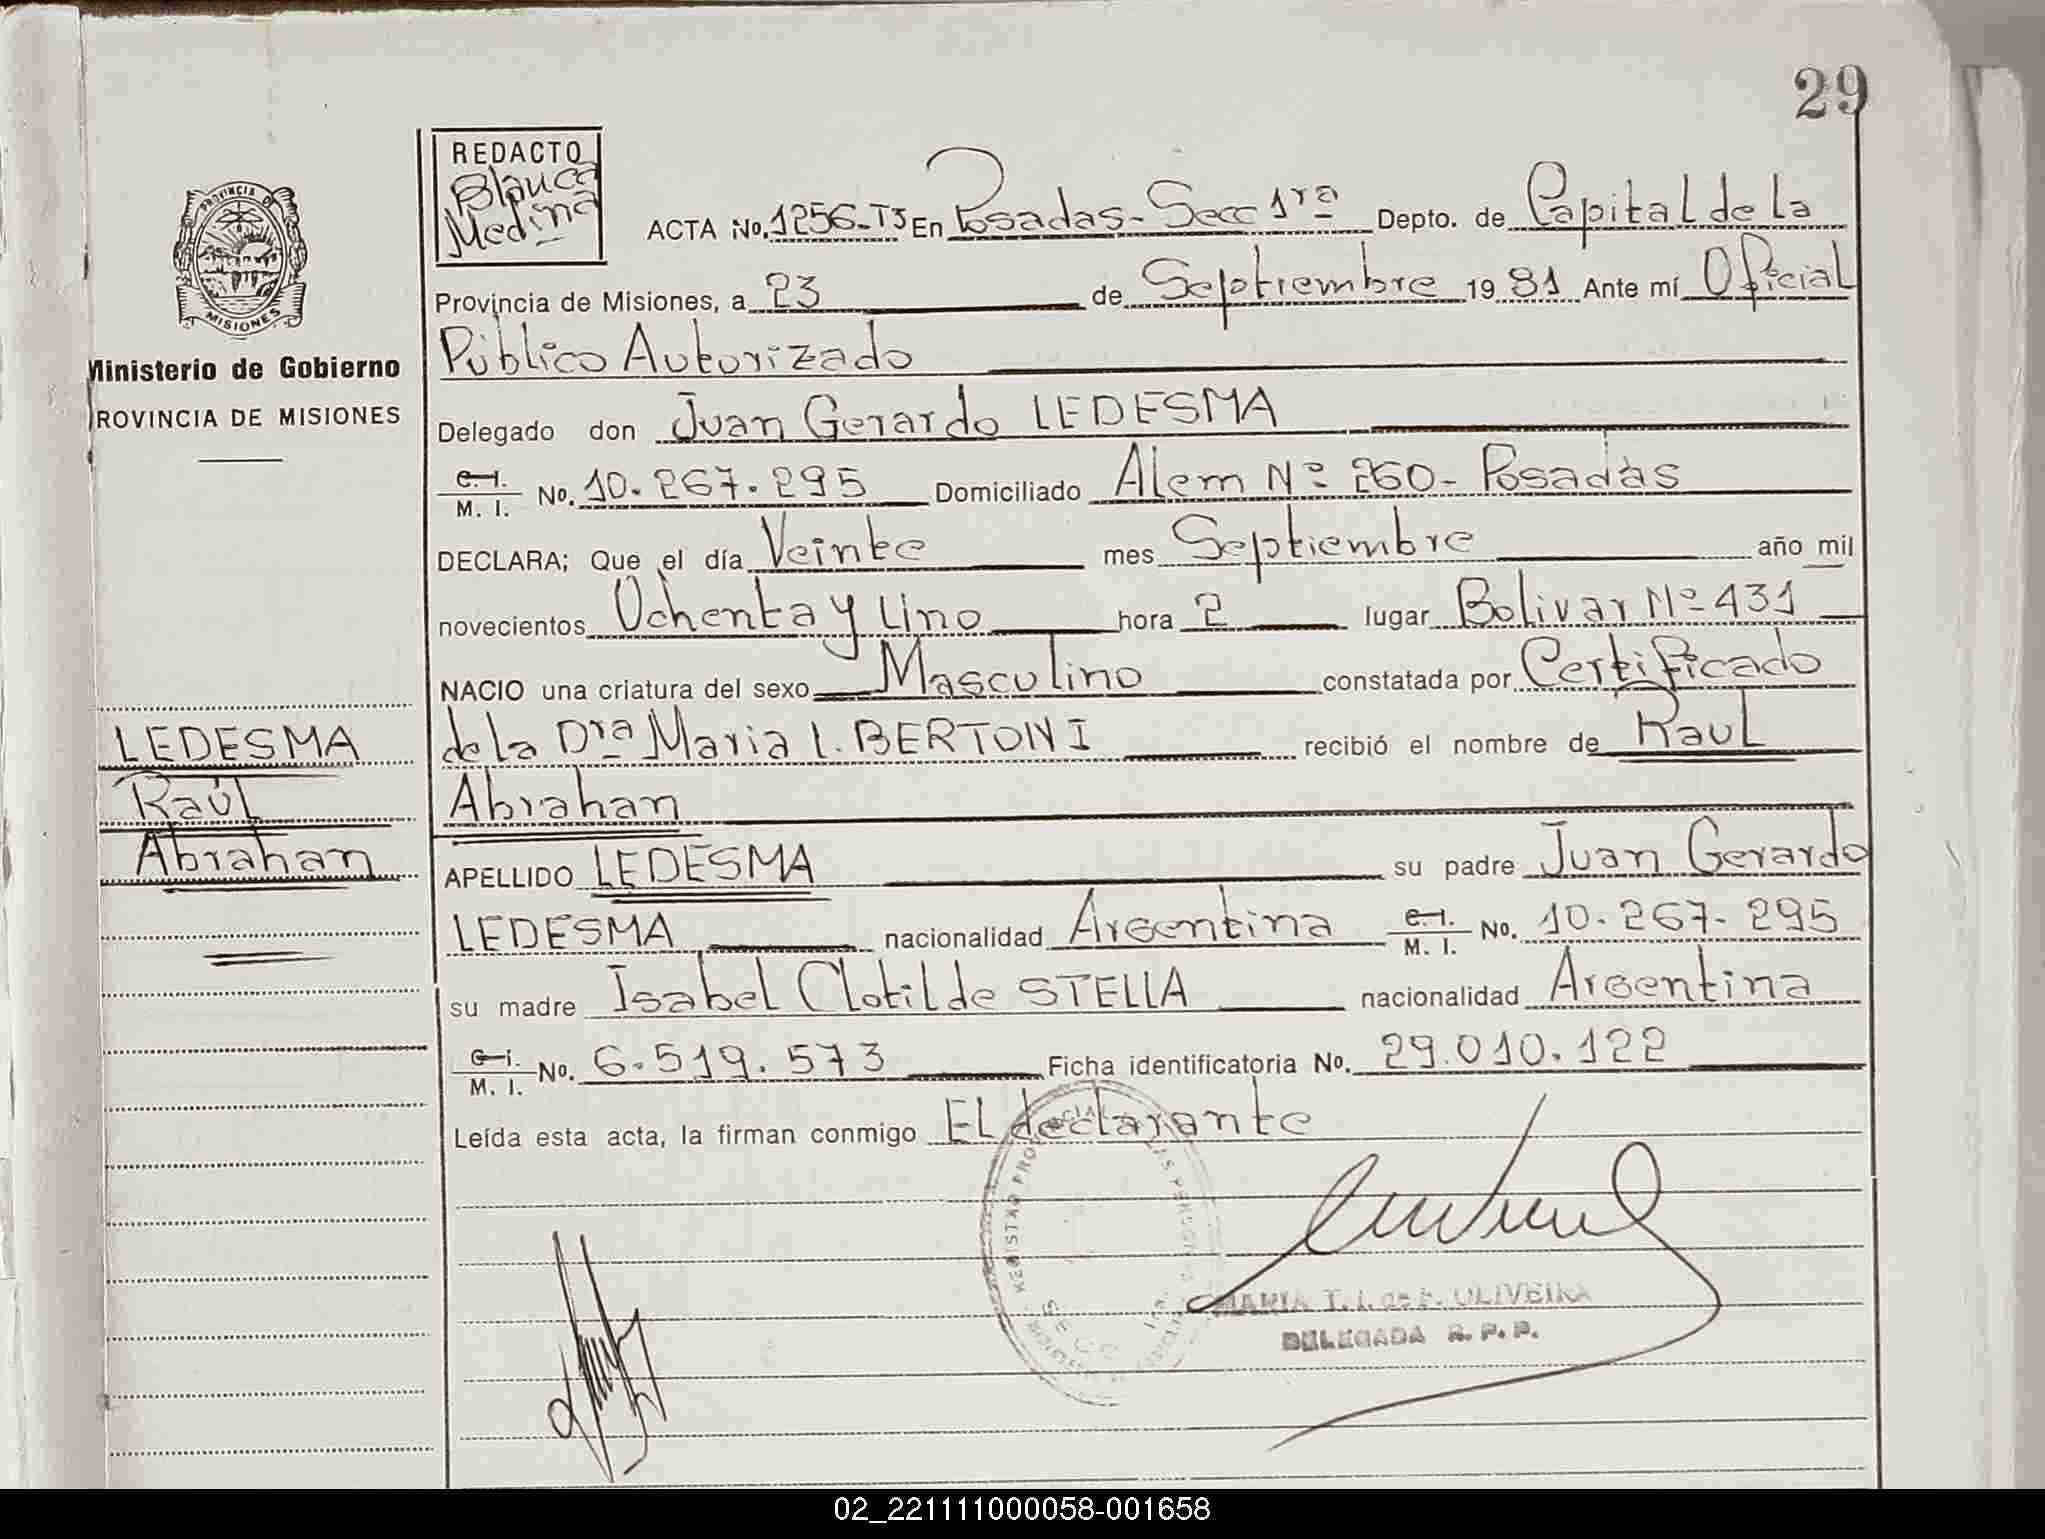 29
PROVINCIA DE
MISIONES
Ministerio de Gobierno
ROVINCIA DE MISIONES
REDACTO
Blanca
Medina
ACTA No. 1256-T3 En Posadas - Secc 1ra Depto. de Capital de la
Provincia de Misiones, a 23 de Septiembre 1981 Ante mí Oficial
Público Autorizado
Delegado don Juan Gerardo LEDESMA
C. I. / M. I. No. 10.267.295 Domiciliado Alem Nº 260 - Posadas
DECLARA; Que el día Veinte mes Septiembre año mil
novecientos Ochenta y Uno hora 2 lugar Bolivar Nº 431
NACIO una criatura del sexo Masculino constatada por Certificado
de la Dra Maria L. BERTONI recibió el nombre de Raul
Abrahan
APELLIDO LEDESMA su padre Juan Gerardo
LEDESMA nacionalidad Argentina C. I. / M. I. No. 10.267.295
su madre Isabel Clotilde STELLA nacionalidad Argentina
C. I. / M. I. No. 6.519.573 Ficha identificatoria No. 29.010.122
Leída esta acta, la firman conmigo El declarante
LEDESMA
Raúl
Abrahan
REGISTRO PROVINCIAL
SECC 1ra.
MARIA T. I. de F. OLIVEIRA
DELEGADA R. P. P.
02_221111000058-001658